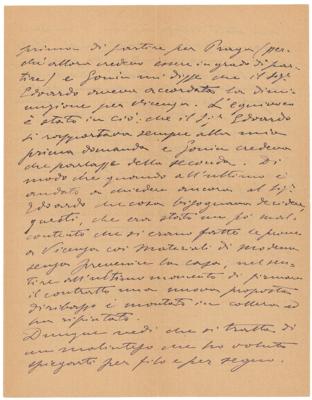 prima di partire per Praga (per-
chè allora credevo essere in grado di par-
tire) e Gonin mi disse che il Sigr
Edoardo aveva accordata la dimi-
nuzione per Vicenza. L'equivoco
è stato in ciò che il Sigr Edoardo
si rapportava sempre alla mia
prima domanda e Gonin credeva
che parlasse della seconda. Di
modo che quando all'ultimo è
andato a chiedere ancora al Sigr
Edoardo che cosa bisognava decidere,
questi, che era stato un po' mal-
contento che si erano fatte le prove
a Vicenza coi materiali di Modena
senza prevenire la casa, nel sen-
tire all'ultimo momento di firmare
il contratto una nuova proposta
di ribasso è montato in collera ed
ha rifiutato.
Dunque vedi che si tratta di
un malinteso che ho voluto
spiegarti per filo e per segno.